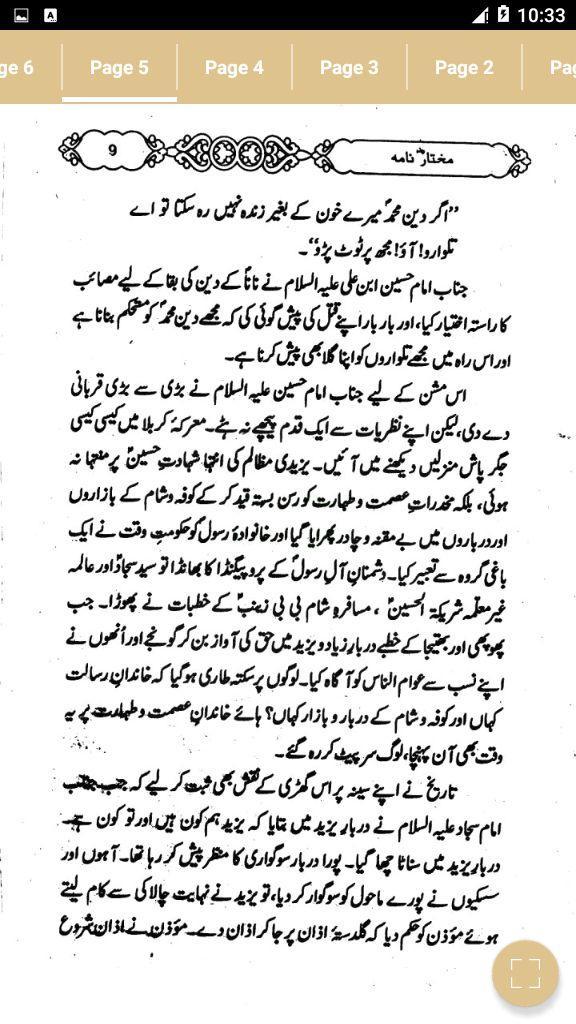 10:33
ge 6
Page 5
Page 4
Page 3
Page 2
Pag
9
مختار نامہ
”اگر دین محمدؐ میرے خون کے بغیر زندہ نہیں رہ سکتا تو اے
تلوارو! آؤ! مجھ پر ٹوٹ پڑو“۔
جناب امام حسین ابن علی علیہ السلام نے ناناؐ کے دین کی بقا کے لیے مصائب
کا راستہ اختیار کیا، اور بار بار اپنے قتل کی پیش گوئی کی کہ مجھے دین محمدؐ کو مستحکم بنانا ہے
اور اس راہ میں مجھے تلواروں کو اپنا گلا بھی پیش کرنا ہے۔
اس مشن کے لیے جناب امام حسین علیہ السلام نے بڑی سے بڑی قربانی
دے دی، لیکن اپنے نظریات سے ایک قدم پیچھے نہ ہٹے۔ معرکۂ کربلا میں کیسی کیسی
جگر پاش منزلیں دیکھنے میں آئیں۔ یزیدی مظالم کی انتہا شہادتِ حسینؑ پر منتہا نہ
ہوئی، بلکہ مخدراتِ عصمت و طہارت کو رسن بستہ قید کر کے کوفہ و شام کے بازاروں
اور درباروں میں بے مقنہ و چادر پھرایا گیا اور خانوادۂ رسولؐ کو حکومتِ وقت نے ایک
باغی گروہ سے تعبیر کیا۔ دشمنانِ آلِ رسولؐ کے پروپیگنڈا کا بھانڈا تو سید سجادؑ اور عالمہ
غیر معلّمہ شریکۃ الحسینؑ ، مسافرہِ شام بی بی زینبؑ کے خطبات نے پھوڑا۔ جب
پھوپھی اور بھتیجا کے خطبے دربارِ زیاد و یزید میں حق کی آواز بن کر گونجے اور اُنھوں نے
اپنے نسب سے عوام الناس کو آگاہ کیا۔ لوگوں پر سکتہ طاری ہو گیا کہ خاندانِ رسالت
کہاں اور کوفہ و شام کے دربار و بازار کہاں؟ ہائے خاندانِ عصمت و طہارت پر یہ
وقت بھی آن پہنچا، لوگ سر پیٹ کر رہ گئے۔
تاریخ نے اپنے سینہ پر اس گھڑی کے نقش بھی ثبت کر لیے کہ جب جناب
امام سجاد علیہ السلام نے دربارِ یزید میں بتایا کہ یزید ہم کون ہیں اور تو کون ہے۔
دربارِ یزید میں سناٹا چھا گیا۔ پورا دربار سوگواری کا منظر پیش کر رہا تھا۔ آہوں اور
سسکیوں نے پورے ماحول کو سوگوار کر دیا، تو یزید نے نہایت چالاکی سے کام لیتے
ہوئے مؤذن کو حکم دیا کہ گلدستۂ اذان پر جا کر اذان دے۔ مؤذن نے اذان شروع